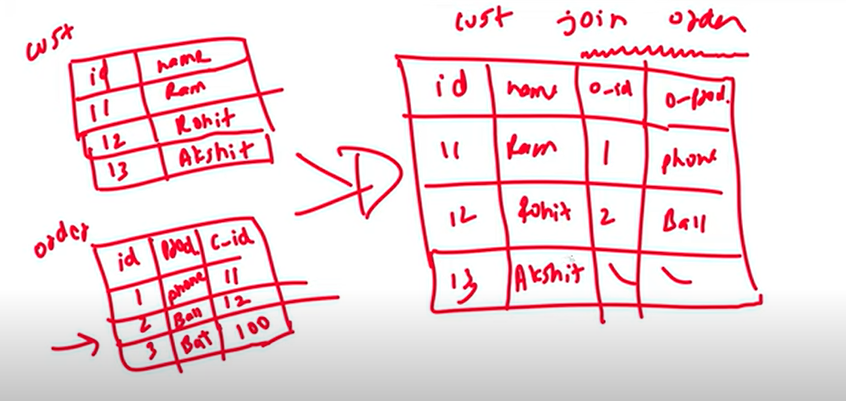 cust
id name
11 Ram
12 Rohit
13 Akshit
order
id Prod. C-id
1 phone 11
2 Ball 12
3 Bat 100
cust join order
id name o-id o-prod.
11 Ram 1 phone
12 Rohit 2 Ball
13 Akshit